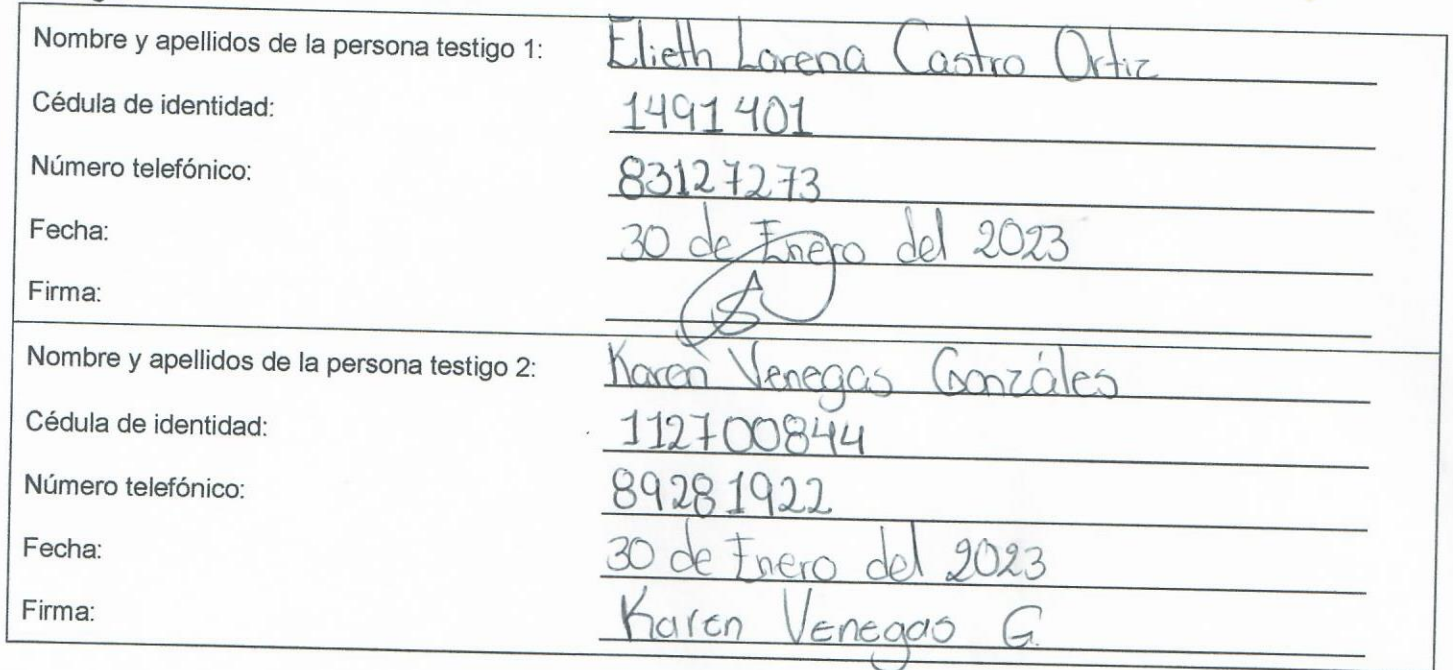 Nombre y apellidos de la persona testigo 1: Elieth Lorena Castro Ortiz
Cédula de identidad: 1491401
Número telefónico: 83127273
Fecha: 30 de Enero del 2023
Firma:
Nombre y apellidos de la persona testigo 2: Karen Venegas Gonzáles
Cédula de identidad: 112700844
Número telefónico: 89281922
Fecha: 30 de Enero del 2023
Firma: Karen Venegas G.